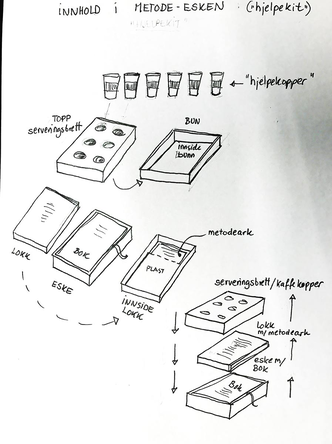 INNHOLD i METODE-ESKEN. ("hjelpekit")
"HJELPEKIT"
"hjelpekopper"
TOPP
serveringsbrett
BUN
innside
i bunn
LOKK
BOK
ESKE
metodeark
PLAST
iNNSIDE
LOKK
serveringsbrett/kaffekopper
lokk
m/metodeark
eske m/
BOK
Bok